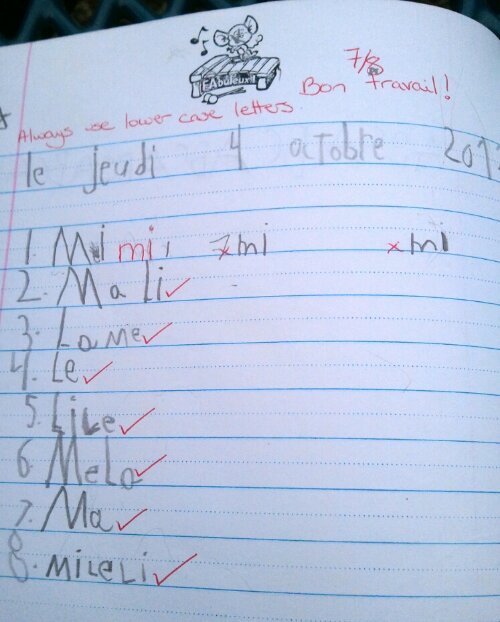 FAbuleux!!
7/8
Bon travail!
Always use lower case letters.
le jeudi 4 octobre
1. Mi mi, xmi xmi
2. Ma Li
3. LaMe
4. Le
5. LiLe
6. MeLa
7. Ma
8. MiLeLi